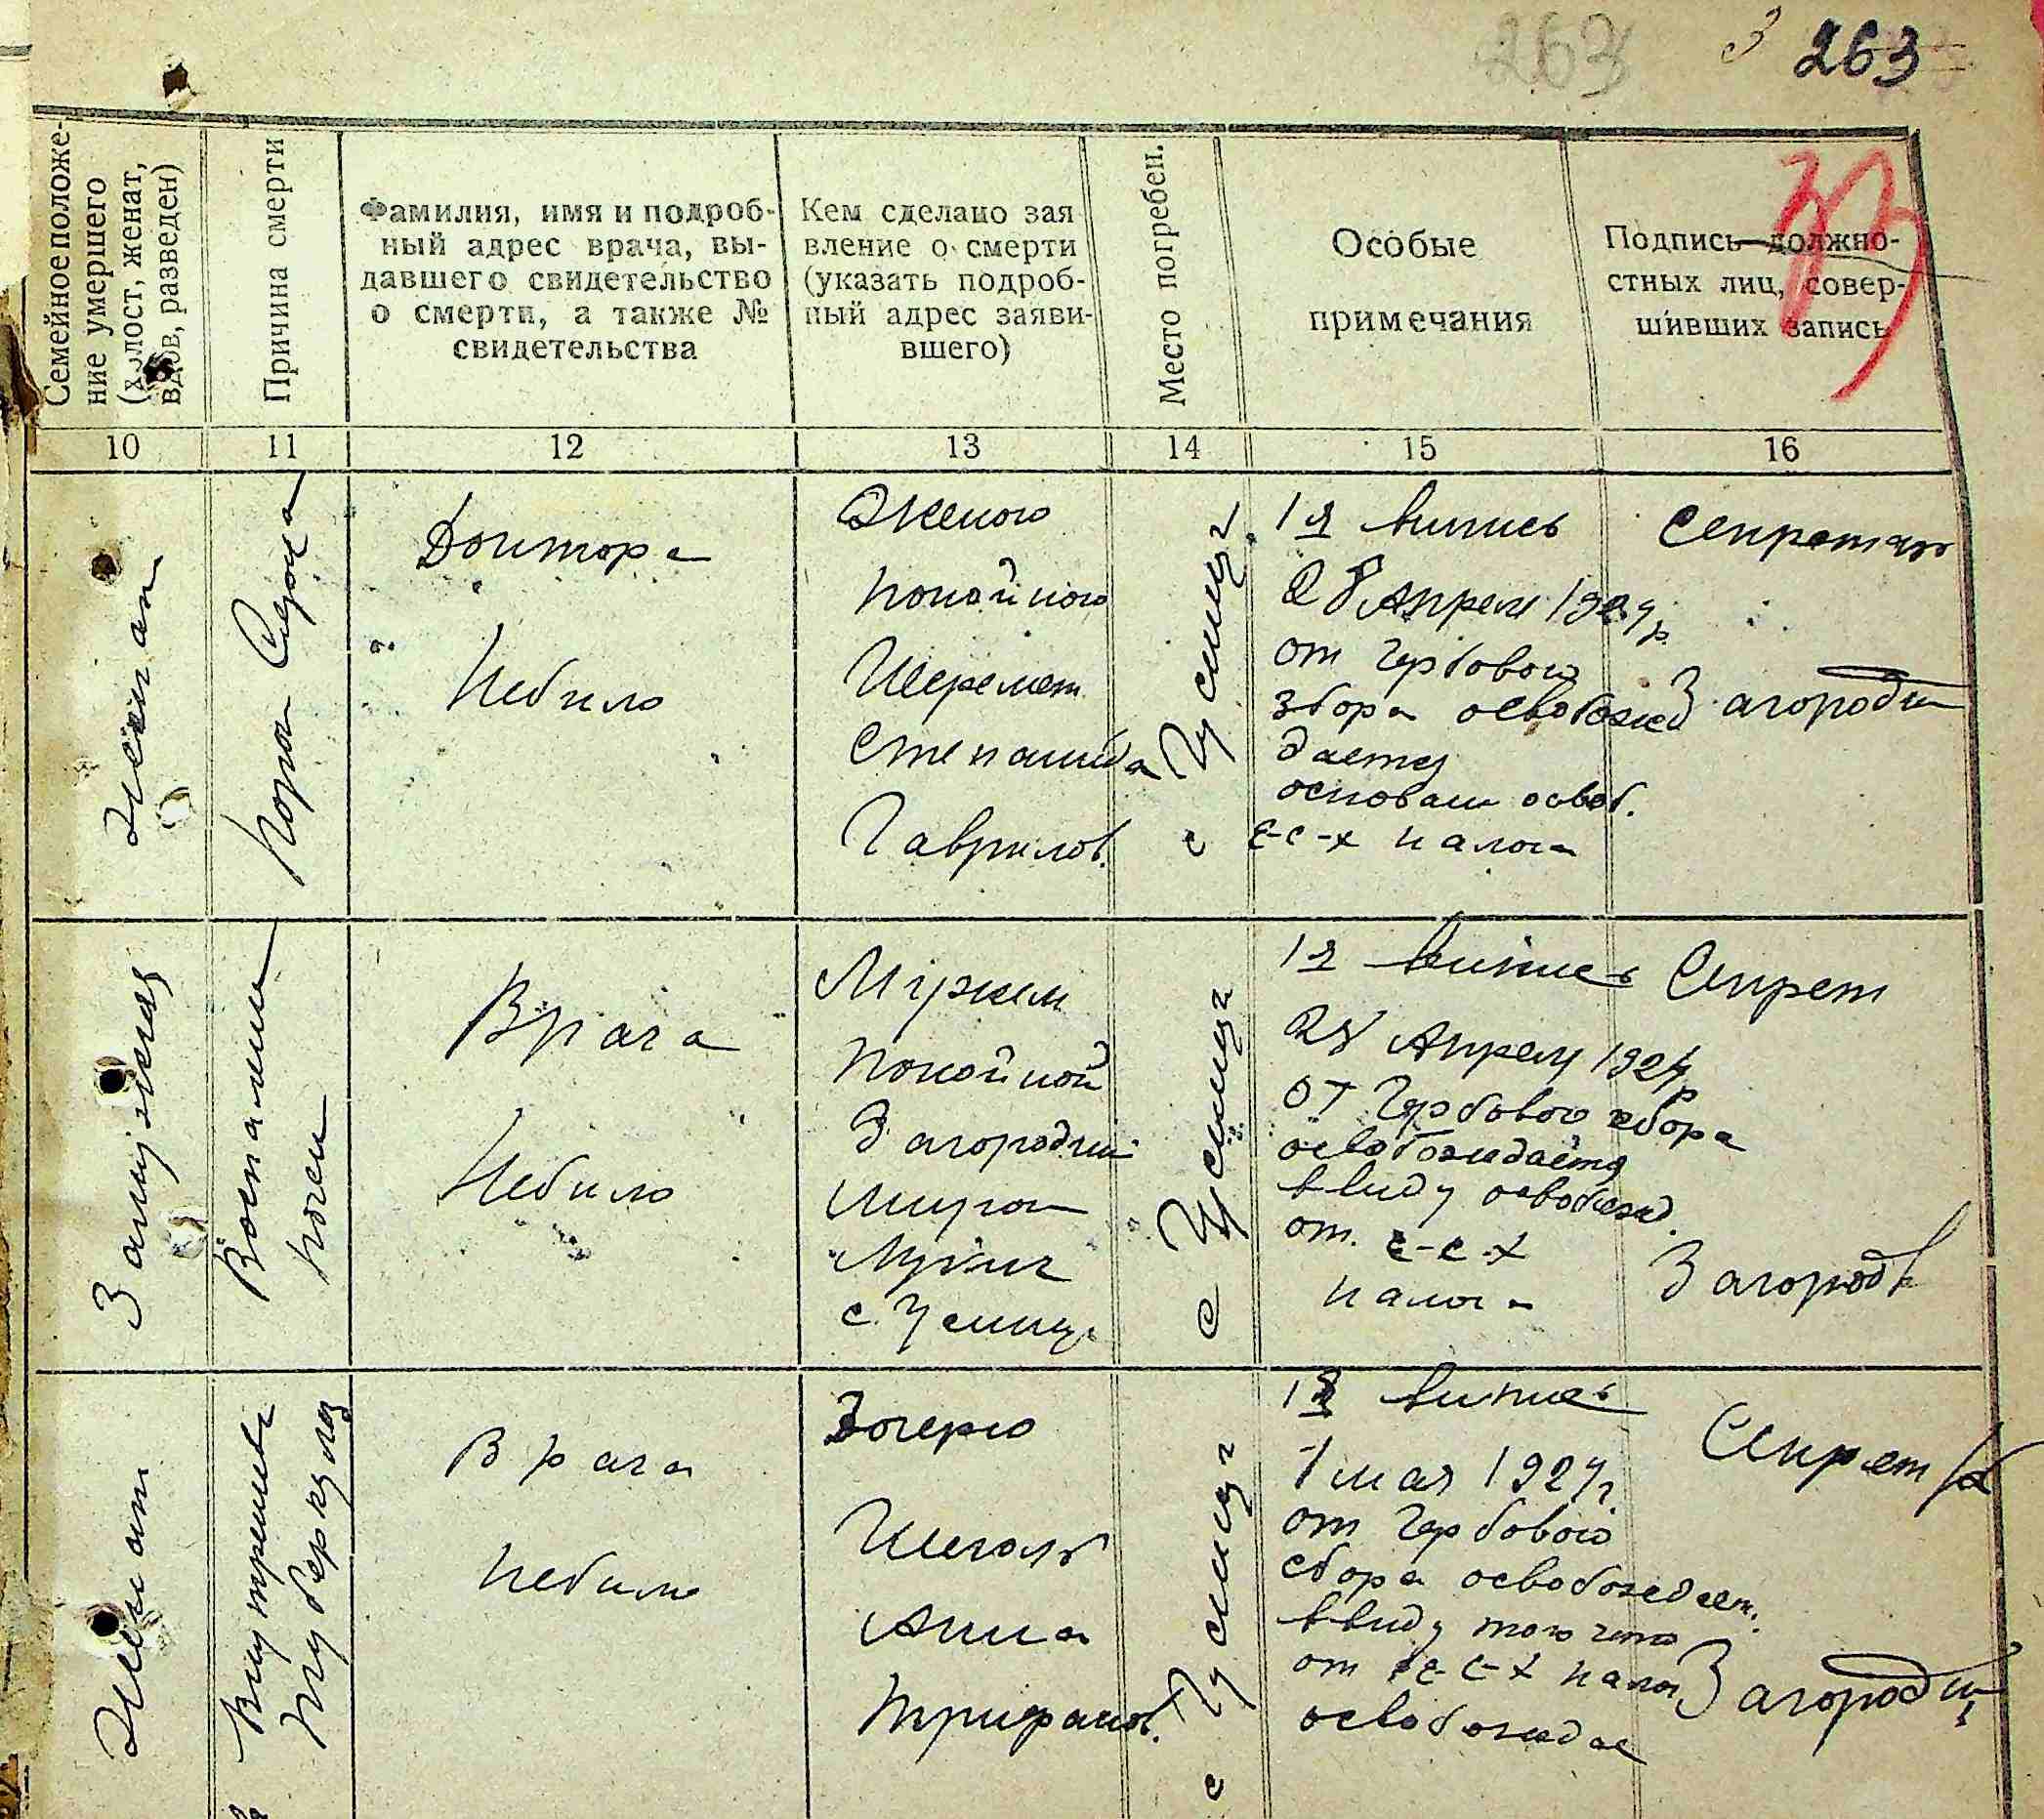 263
3 263
33
Семейное положе-
ние умершего
(холост, женат,
вдов, разведен)
Причина смерти
Фамилия, имя и подроб-
ный адрес врача, вы-
давшего свидетельство
о смерти, а также №
свидетельства
Кем сделано зая
вление о смерти
(указать подроб-
ный адрес заяви-
вшего)
Место погребен.
Особые
примечания
Подпись должно-
стных лиц, совер-
шивших запись
10 11 12 13 14 15 16
женат
Порок Сердца
Доктора
Небило
Женою
покойного
Шеремет
Степанида
Гаврилов.
с
1я выпись
28 Апреля 1924г
от гербового
збора освобожд
дается
основан освоб.
Е-С-Х налога
Секретарь
Загородн
Замужняя
Воспаление
почек
Врача
Небило
Мужем
покойной
Загородний
Мирон
Лукич
с.
с
1я выпись
28 Апреля 1924г
от Гербового сбора
освобождается
ввиду освобожд.
от Е-С-Х
налога
Секрет
Загородн
Женат
Внутренний
туберкулез
Врача
Небило
Дочерю
Анна
Трифанов.
с
1я выпись
1 мая 1924г.
от гербового
сбора освобождает.
ввиду того что
от Е-С-Х налог
освобождае
Секрет
Загородн